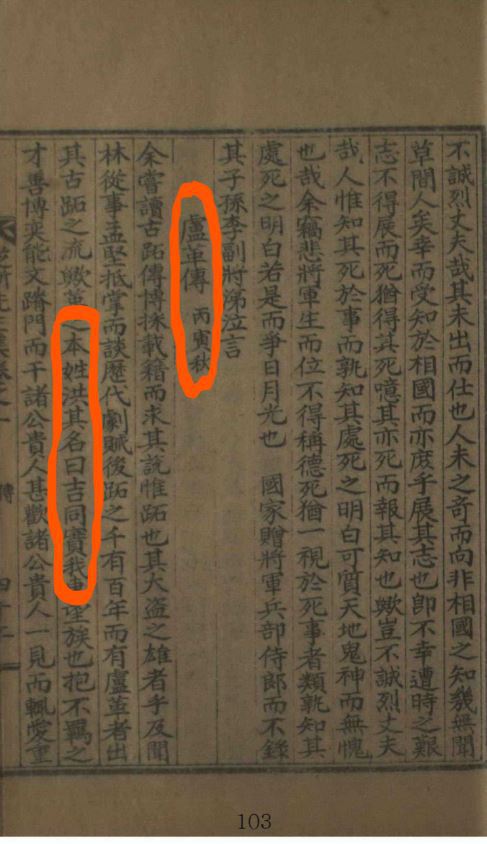 不誠烈丈夫哉其未出而仕也人未之奇而向非相國之知幾無聞
草間人矣幸而受知於相國而亦庶乎展其志也卽不幸遭時之艱
志不得展而死猶得其死噫其亦死而報其知也歟豈不誠烈丈夫
哉人惟知其死於事而孰知其處死之明白可質天地鬼神而無愧
也哉余竊悲將軍生而位不得稱德死猶一視於死事者類孰知其
處死之明白若是而爭日月光也 國家贈將軍兵部侍郎而不錄
其子孫李副將涕泣言
盧革傳 丙寅秋
余嘗讀古跖傳博採載籍而求其說惟跖也其大盜之雄者乎及聞
林從事孟堅抵掌而談歷代劇賊後跖之千有百年而有盧革者出
其古跖之流歟革之本姓洪其名曰吉同實我東望族也抱不羈之
才善博奕能文躋門而干諸公貴人甚歡諸公貴人一見而輒愛重
傳
103